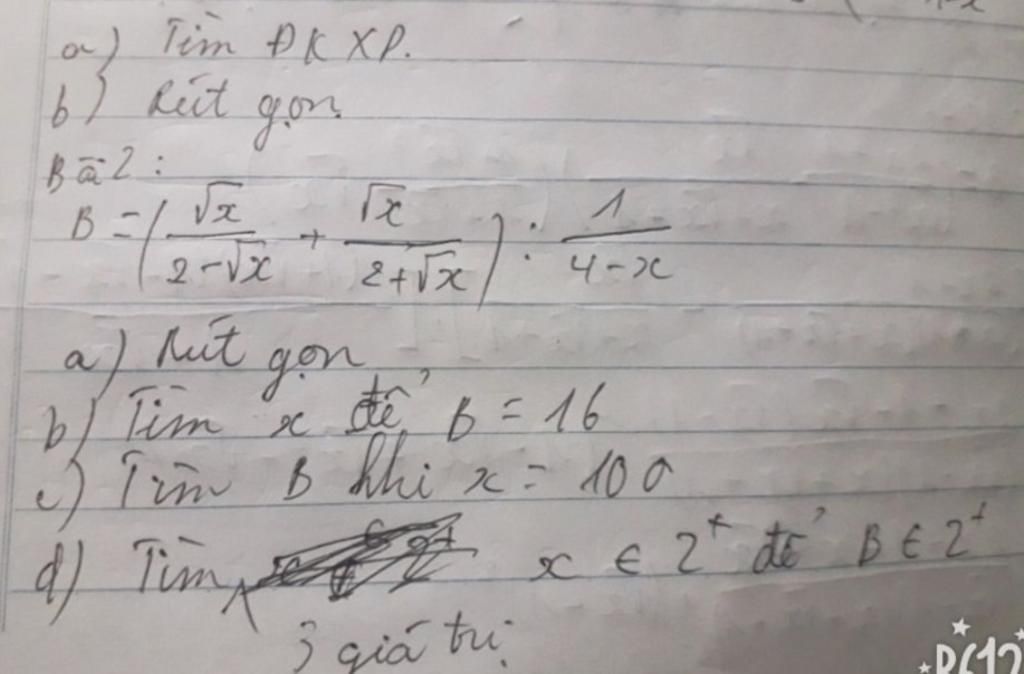 a) Tìm ĐKXĐ.
b) Rút gọn.
Bài 2:
B = ( √x / 2-√x + √x / 2+√x ) : 1 / 4-x
a) Rút gọn
b) Tìm x để B = 16
c) Tìm B khi x = 100
d) Tìm x ∈ Z⁺ để B ∈ Z⁺
3 giá trị
B612